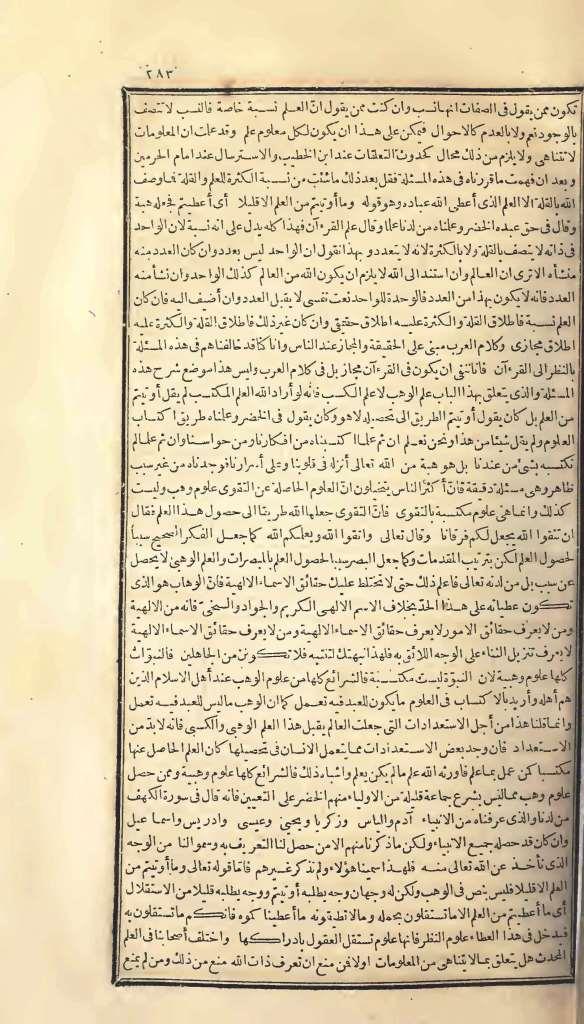 ٢٨٣
تكون ممن يقول فى الصفات انها نسب وان كنت ممن يقول انّ العلم نسبة خاصة فالنسب لا تتصف
بالوجود نعم ولا بالعدم كالاحوال فيمكن على هذا ان يكون لكل معلوم علم وقد علمت ان المعلومات
لا تتناهى ولا يلزم من ذلك محال كحدوث التعلقات عند ابن الخطيب والاسترسال عند امام الحرمين
وبعد ان فهمت ما قررناه فى هذه المسئلة فقل بعد ذلك ما شئت من نسبة الكثرة للعلم والقلة فما وصف
الله بالقلة الا العلم الذى أعطى الله عباده وهو قوله وما أوتيتم من العلم الا قليلا أى أعطيتم فجعله هبة
وقال فى حق عبده الخضر وعلمناه من لدنا علما وقال علم القرءآن فهذا كله يدل على انه نسبة لان الواحد
فى ذاته لا يتصف بالقلة ولا بالكثرة لانه لا يتعدد وبهذا نقول ان الواحد ليس بعدد وان كان العدد منه
منشأه الا ترى ان العالم وان استند الى الله لا يلزم ان يكون الله من العالم كذلك الواحد وان نشأ منه
العدد فانه لا يكون بهذا من العدد فالوحدة للواحد نعت نفسى لا يقبل العدد وان أضيف اليه فان كان
العلم نسبة فاطلاق القلة والكثرة عليه اطلاق حقيقى وان كان غير ذلك فاطلاق القلة والكثرة عليه
اطلاق مجازى وكلام العرب مبنى على الحقيقة والمجاز عند الناس وان كنا قد خالفناهم فى هذه المسئلة
بالنظر الى القرءآن فاننا ننفى ان يكون فى القرءآن مجاز بل فى كلام العرب وليس هذا موضع شرح هذه
المسئلة والذى يتعلق بهذا الباب علم الوهب لا علم الكسب فانه لو أراد الله العلم المكتسب لم يقل أوتيتم
من العلم بل كان يقول أوتيتم الطريق الى تحصيله لا هو وكان يقول فى الخضر وعلمناه طريق اكتساب
العلوم ولم يقل شيئا من هذا ونحن نعلم ان ثم علما اكتسبناه من افكارنا ومن حواسنا وان ثم علما لم
نكتسبه بشئ من عندنا بل هو هبة من الله تعالى أنزله فى قلوبنا وعلى أسرارنا فوجدناه من غير سبب
ظاهر وهى مسئلة دقيقة فانّ أكثر الناس يتخيلون انّ العلوم الحاصلة عن التقوى علوم وهب وليست
كذلك وانما هى علوم مكتسبة بالتقوى فانّ التقوى جعلها الله طريقا الى حصول هذا العلم فقال
ان تتقوا الله يجعل لكم فرقانا وقال تعالى واتقوا الله ويعلمكم الله كما جعل الفكر الصحيح سببا
لحصول العلم لكن بترتيب المقدمات وكما جعل البصر سببا لحصول العلم بالمبصرات والعلم الوهبىّ لا يحصل
عن سبب بل من لدنه تعالى فاعلم ذلك حتى لا تختلط عليك حقائق الاسماء الالهية فانّ الوهاب هو الذى
تكون عطياته على هذا الحدّ بخلاف الاسم الالهى الكريم والجواد والسخىّ فانه من الالهية
ومن لا يعرف حقائق الامور لا يعرف حقائق الاسماء الالهية ومن لا يعرف حقائق الاسماء الالهية
لا يعرف تنزيل الثناء على الوجه اللائق به فلهذا نبهتك لتتنبه فلا تكونن من الجاهلين فالنبوّات
كلها علوم وهبية لان النبوّة ليست مكتسبة فالشرائع كلها من علوم الوهب عند أهل الاسلام الذين
هم أهله وأريد بالاكتساب فى العلوم ما يكون للعبد فيه تعمل كما ان الوهب ما ليس للعبد فيه تعمل
وانما قلنا هذا من أجل الاستعدادات التى جعلت العالم يقبل هذا العلم الوهبى والكسبى فانه لا بدّ من
الاستعداد فان وجد بعض الاستعدادات مما يتعمل الانسان فى تحصيلها كان العلم الحاصل عنها
مكتسبا كمن عمل بما علم فاورثه الله علم ما لم يكن يعلم واشباه ذلك فالشرائع كلها علوم وهبية وممن حصل
علوم وهب مما ليس بشرع جماعة قليلة من الاولياء منهم الخضر على التعيين فانه قال فى سورة الكهف
من لدنا والذى عرفناه من الانبياء آدم والياس وزكريا ويحيى وعيسى وادريس واسماعيل
وان كان قد حصله جميع الانبياء ولكن ما ذكرنا منهم الا من حصل لنا التعريف به وسموا لنا من الوجه
الذى نأخذ عن الله تعالى منه فلهذا سمينا هؤلاء ولم نذكر غيرهم فاما قوله تعالى وما أوتيتم من
العلم الا قليلا فليس بنص فى الوهب ولكن له وجهان وجه يطلبه أوتيتم ووجه يطلبه قليلا من الاستقلال
أى ما أعطيتم من العلم الا ما تستقلون بحمله وما لا تطيقونه ما أعطيناكموه فانكم ما تستقلون به
فيدخل فى هذا العطاء علوم النظر فانها علوم تستقل العقول بادراكها واختلف أصحابنا فى العلم
المحدث هل يتعلق بما لا يتناهى من المعلومات أولا فمن منع ان تعرف ذات الله منع من ذلك ومن لم يمنع